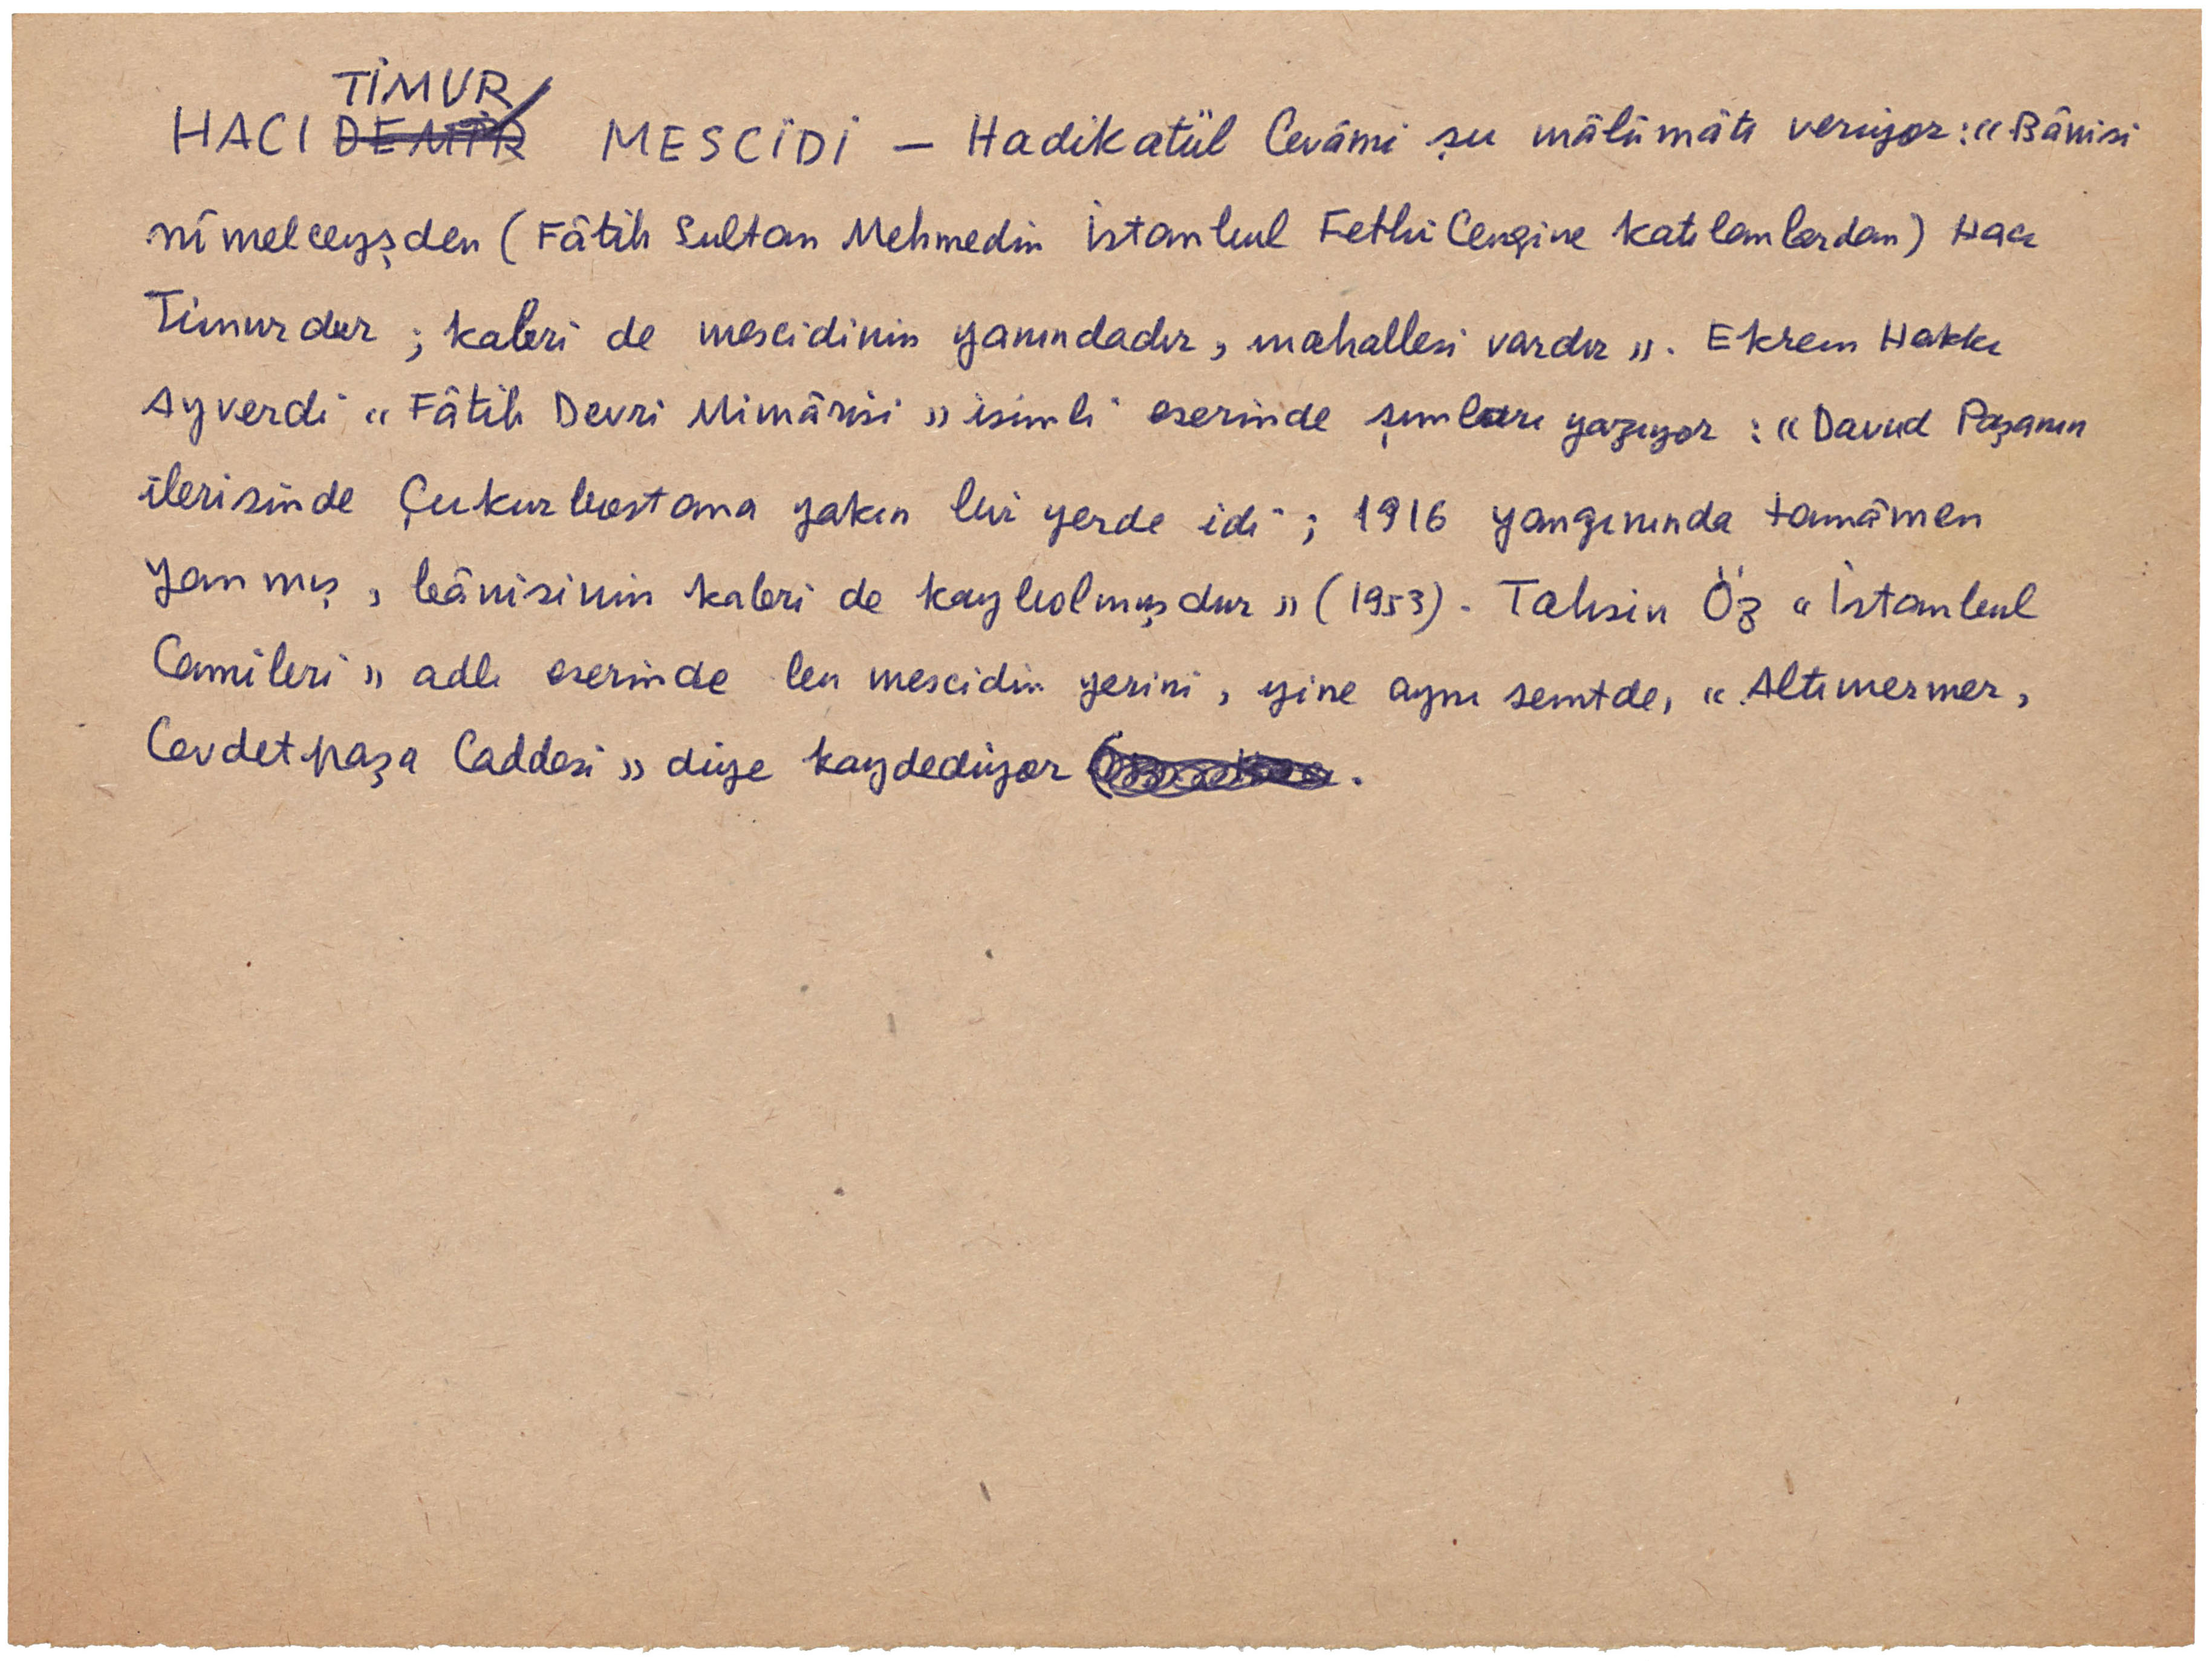 HACI TİMUR MESCİDİ — Hadikatül Cevâmi şu mâlûmâtı veriyor: «Bânisi
nîmelceyşden (Fâtih Sultan Mehmedin İstanbul Fethi Cengine katılanlardan) Hacı
Timurdur ; kabri de mescidinin yanındadır, mahallesi vardır ». Ekrem Hakkı
Ayverdi « Fâtih Devri Mimârisi » isimli eserinde şunları yazıyor : « Davud Paşanın
ilerisinde Çukurbostana yakın bir yerde idi ; 1916 yangınında tamâmen
yanmış, bânisinin kabri de kaybolmuşdur » (1953). Tahsin Öz « İstanbul
Camileri » adlı eserinde bu mescidin yerini, yine aynı semtde, « Altımermer,
Cevdetpaşa Caddesi » diye kaydediyor .